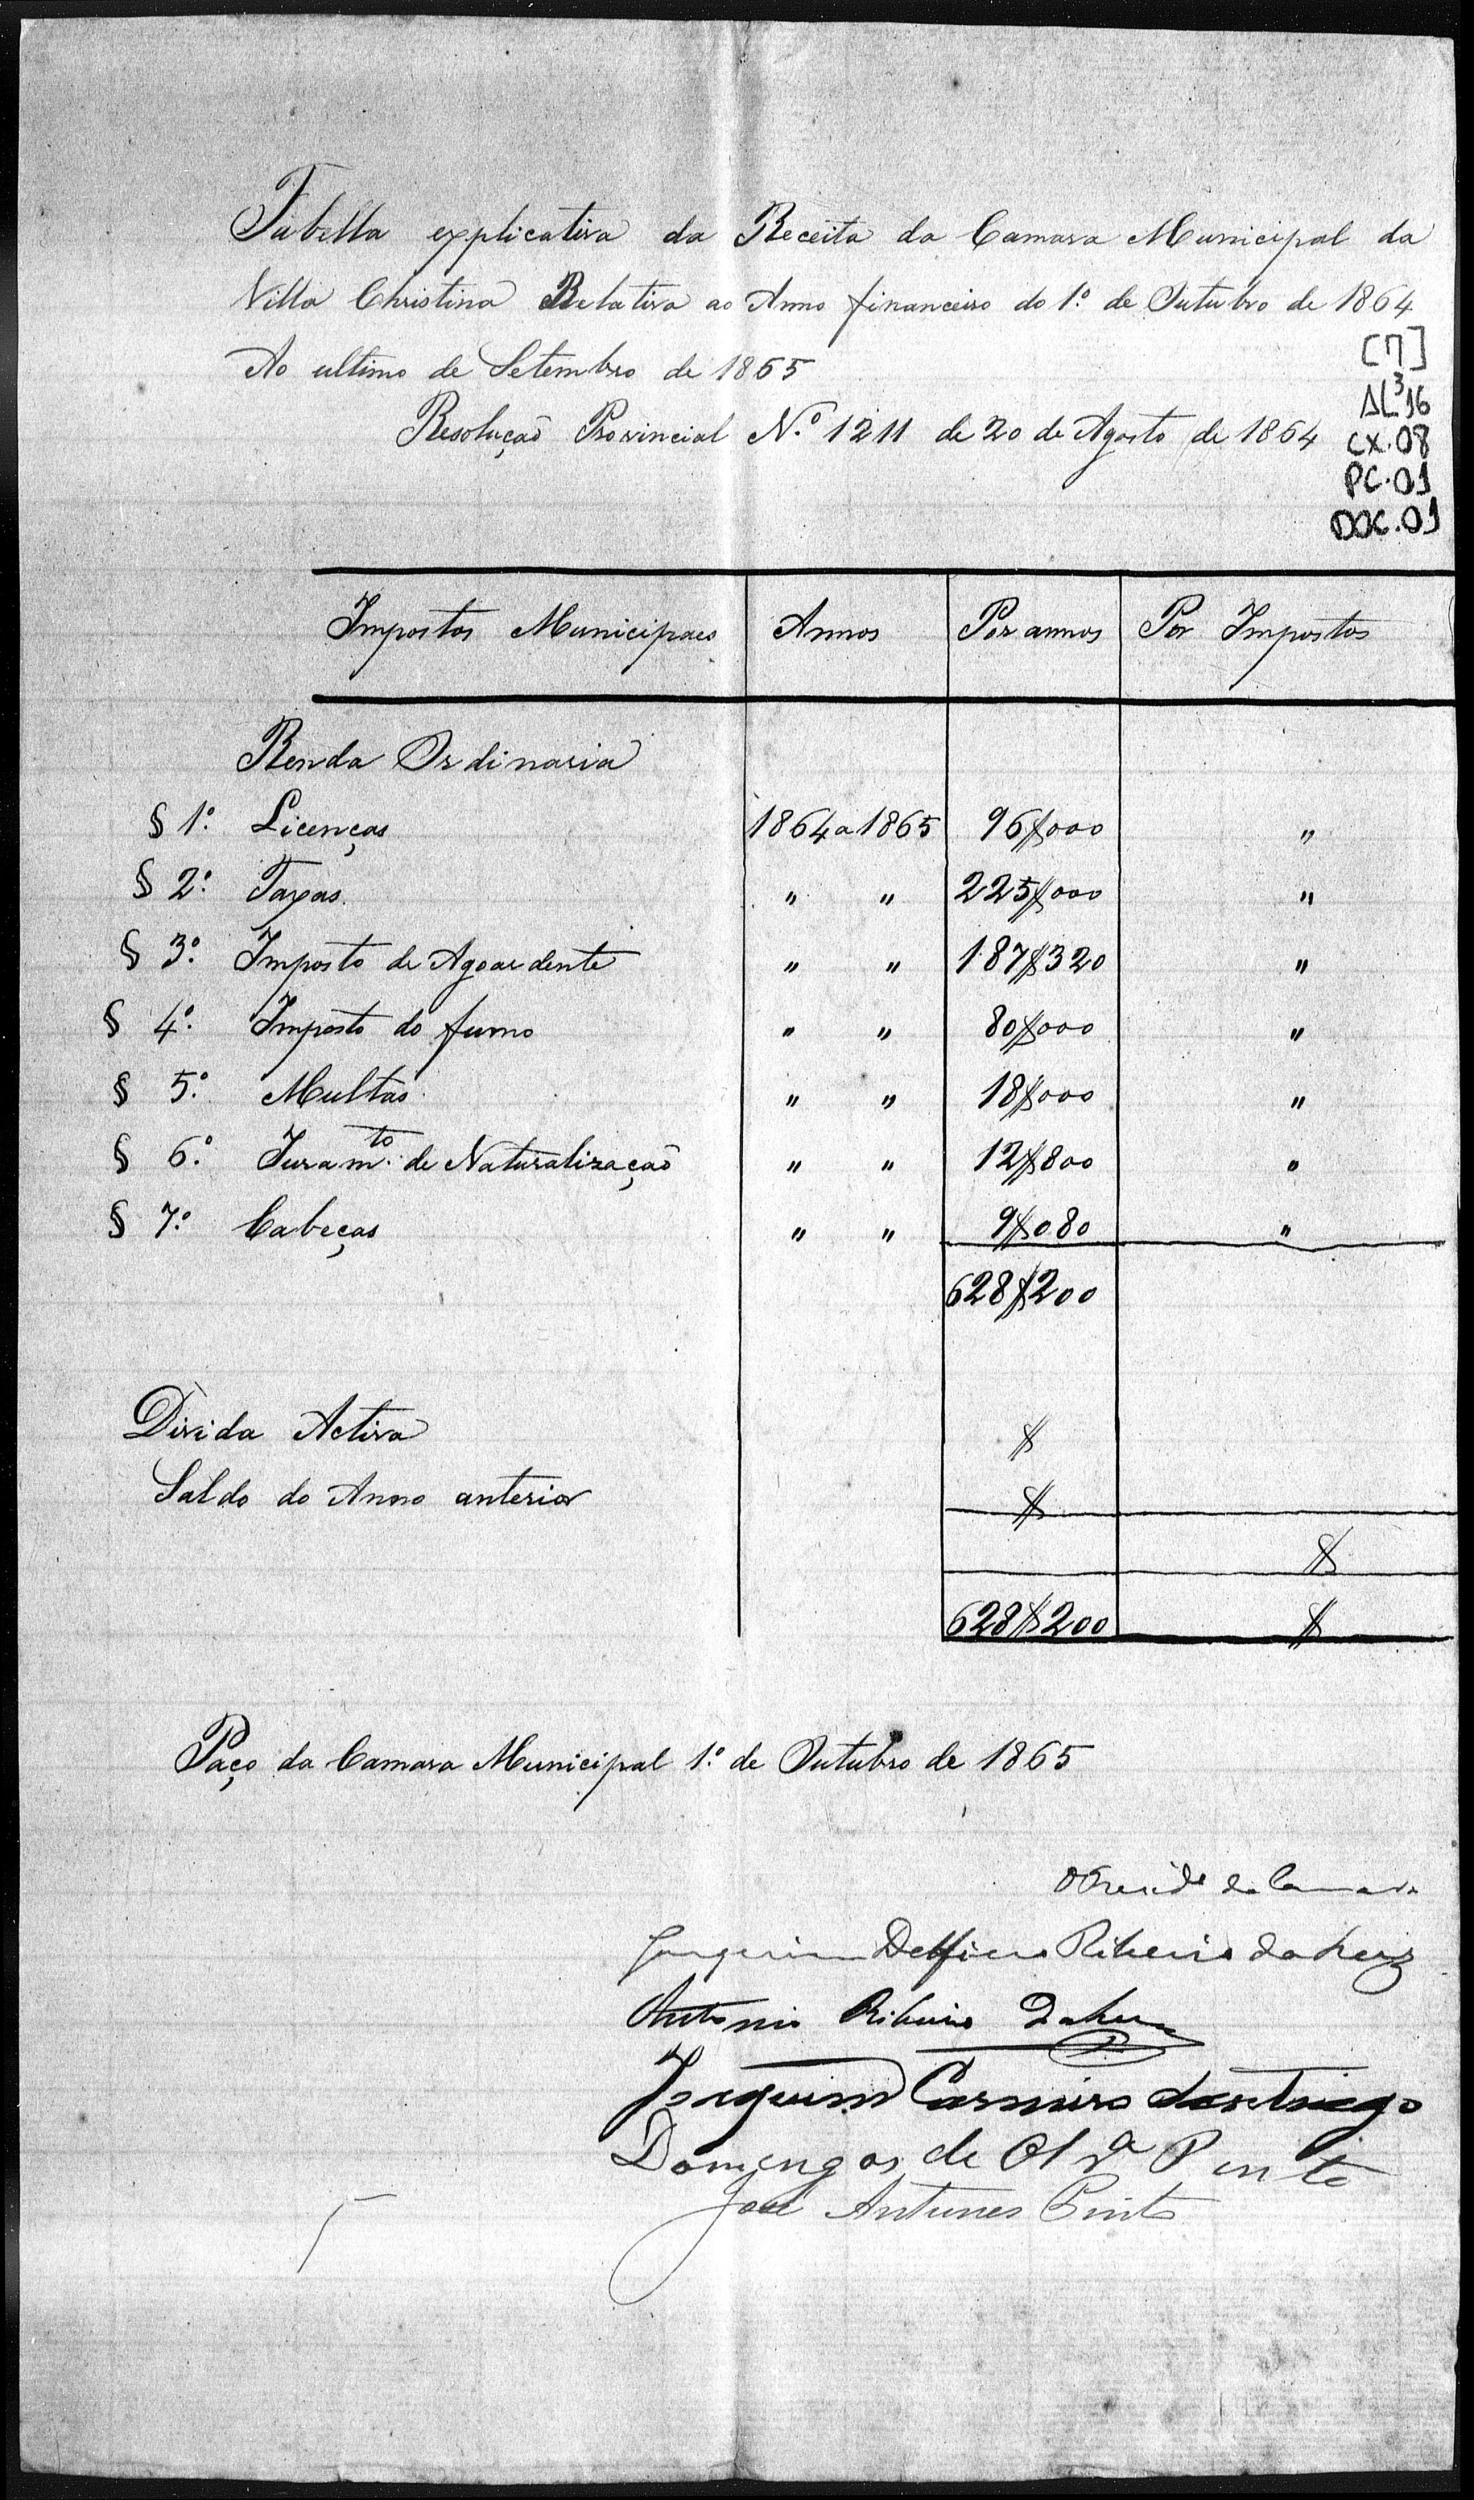 Tabella explicativa da Receita da Camara Municipal da
Villa Christina Relativa ao Anno financeiro do 1º de Outubro de 1864
Ao ultimo de Setembro de 1865
Resolução Provincial N.º 1211 de 20 de Agosto de 1864
[7]
AL³16
CX.08
PC.01
DOC.01
Impostos Municipaes Annos Por annos Por Impostos
Renda Ordinaria
§ 1º. Licenças 1864 a 1865 96$000 "
§ 2º. Taxas. " " 225$000 "
§ 3º. Imposto de Agoardente " " 187$320 "
§ 4º. Imposto do fumo " " 80$000 "
§ 5º. Multas " " 18$000 "
§ 6º. Juram.to de Naturalização " " 12$800 "
§ 7º. Cabeças " " 9$080 "
628$200
Divida Activa $
Saldo do Anno anterior $
$
628$200 $
Paço da Camara Municipal 1º. de Outubro de 1865
O Presid.e da Camara
Joaquim Delfino Ribeiro da Luz
Antonio Ribeiro da Luz
Joaquim Carneiro Santiago
Domingos de Olvª Pinto
José Antunes Pinto